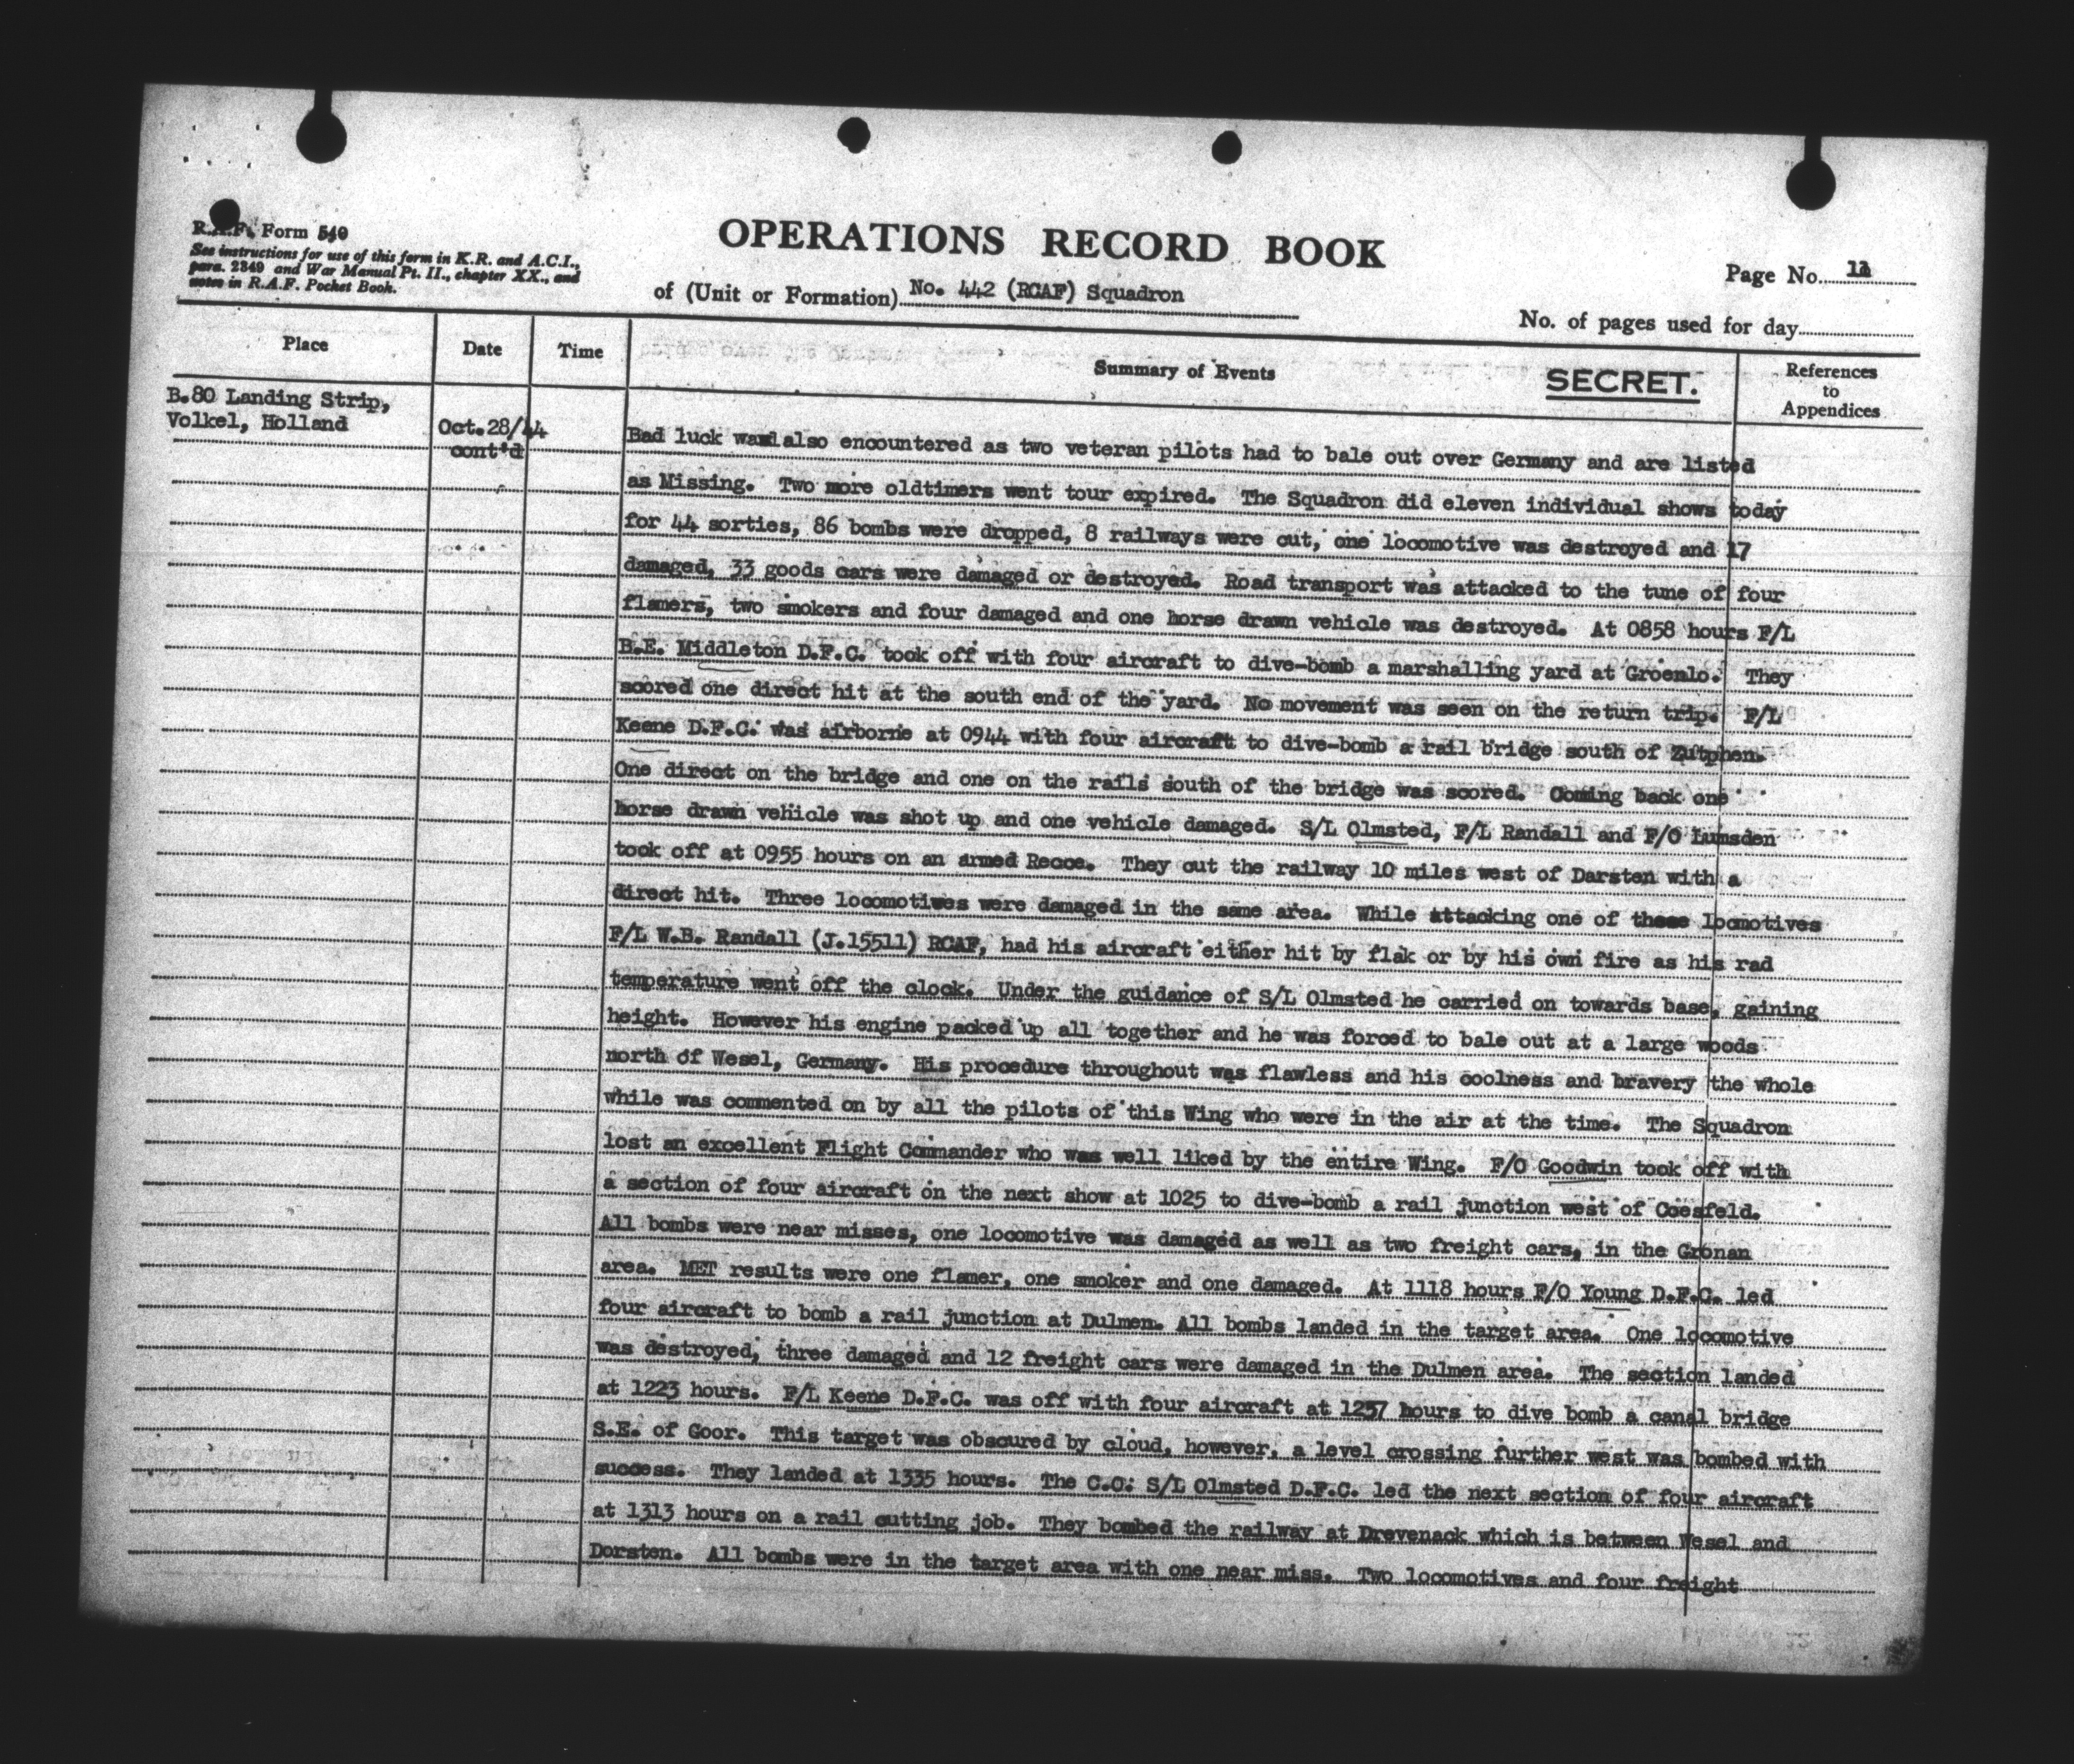 R.A.F. Form 540
See instructions for use of this form in K.R. and A.C.I.,
para. 2349 and War Manual Pt. II., chapter XX., and
notes in R.A.F. Pocket Book.
OPERATIONS RECORD BOOK
of (Unit or Formation) No. 442 (RCAF) Squadron
Page No.
No. of pages used for day
Place
Date
Time
Summary of Events
SECRET.
References
to
Appendices
B.80 Landing Strip,
Volkel, Holland
Oct.28/44
cont'd
Bad luck was also encountered as two veteran pilots had to bale out over Germany and are listed
as Missing. Two more oldtimers went tour expired. The Squadron did eleven individual shows today
for 44 sorties, 86 bombs were dropped, 8 railways were cut, one locomotive was destroyed and 17
damaged, 33 goods cars were damaged or destroyed. Road transport was attacked to the tune of four
flamers, two smokers and four damaged and one horse drawn vehicle was destroyed. At 0858 hours F/L
B.E. Middleton D.F.C. took off with four aircraft to dive-bomb a marshalling yard at Groenlo. They
scored one direct hit at the south end of the yard. No movement was seen on the return trip. F/L
Keene D.F.C. was airborne at 0944 with four aircraft to dive-bomb a rail bridge south of Zutphen.
One direct on the bridge and one on the rails south of the bridge was scored. Coming back one
horse drawn vehicle was shot up and one vehicle damaged. S/L Olmsted, F/L Randall and F/O Lumsden
took off at 0955 hours on an armed Recce. They cut the railway 10 miles west of Darsten with a
direct hit. Three locomotives were damaged in the same area. While attacking one of these locomotives
F/L W.B. Randall (J.15511) RCAF, had his aircraft either hit by flak or by his own fire as his rad
temperature went off the clock. Under the guidance of S/L Olmsted he carried on towards base, gaining
height. However his engine packed up all together and he was forced to bale out at a large woods
north of Wesel, Germany. His procedure throughout was flawless and his coolness and bravery the whole
while was commented on by all the pilots of this Wing who were in the air at the time. The Squadron
lost an excellent Flight Commander who was well liked by the entire Wing. F/O Goodwin took off with
a section of four aircraft on the next show at 1025 to dive-bomb a rail junction west of Coesfeld.
All bombs were near misses, one locomotive was damaged as well as two freight cars, in the Gronan
area. MET results were one flamer, one smoker and one damaged. At 1118 hours F/O Young D.F.C. led
four aircraft to bomb a rail junction at Dulmen. All bombs landed in the target area. One locomotive
was destroyed, three damaged and 12 freight cars were damaged in the Dulmen area. The section landed
at 1223 hours. F/L Keene D.F.C. was off with four aircraft at 1257 hours to dive bomb a canal bridge
S.E. of Goor. This target was obscured by cloud, however, a level crossing further west was bombed with
success. They landed at 1335 hours. The C.O. S/L Olmsted D.F.C. led the next section of four aircraft
at 1313 hours on a rail cutting job. They bombed the railway at Drevenack which is between Wesel and
Dorsten. All bombs were in the target area with one near miss. Two locomotives and four freight